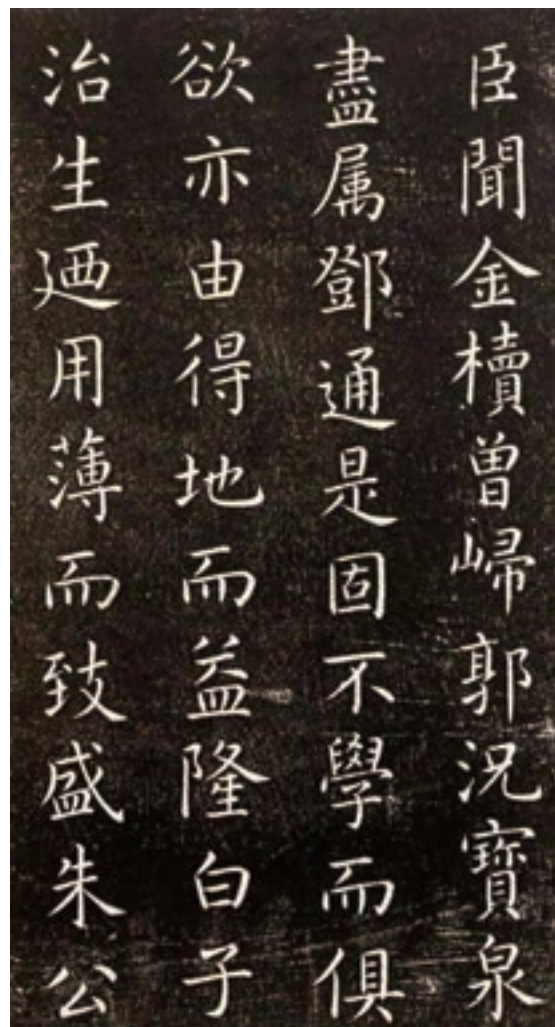 臣聞金櫝曾㱕郭况寳泉
盡属鄧通是固不學而俱
欲亦由得地而益隆白子
治生廼用薄而致盛朱公